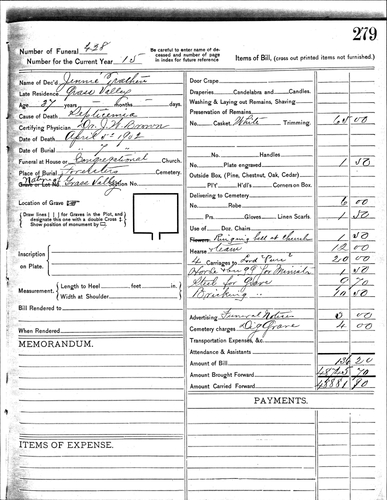 279
Number of Funeral 428
Number for the Current Year 15
Be carefully to enter name of deceased and number of page in index for future reference
Items of Bill, (cross out printed items not furnished.)
Name of Dec'd Jennie
Late Residence Grass Valley
Age 27 years months days.
Cause of Death Septicemia
Certifying Physician Dr. J. W. Brown
Date of Death April 5th 1902
Date of Burial " 7 "
Funeral at House or Congregational Church.
Place of Burial Foresters Cemetery.
Grave or Lot No. Grass Valley Section No.
Location of Grave
Draw lines for Graves in the Plot, and designate this one with a double Cross
Show position of monument by
Inscription on Plate.
Measurement. Length to Heel feet in.
Width at Shoulder
Bill Rendered to
When Rendered
MEMORANDUM.
ITEMS OF EXPENSE.
Door Crape
Draperies Candelabra and Candles.
Washing & Laying out Remains, Shaving
Preservation of Remains
No. Casket, White Trimming. 65 00
No. Handles
Plate engraved 1 50
Outside Box, (Pine, Chestnut, Oak, Cedar)
P'l'y H'd'ls Corners on Box.
Delivering to Cemetery 6 00
No. Robe 1 50
Prs. Gloves Linen Scarfs.
Use of Doz. Chairs
Flowers Ringing bell at Church 1 50
Hearse 12 00
4 Carriages to 20 00
Horse & for Minister 1 50
for Grave 9 70
Bricking " 10 50
Advertising Funeral Notice 3 00
Cemetery charges Dig Grave 4 00
Transportation Expenses, &c
Attendance & Assistants
Amount of Bill 136 20
Amount Brought Forward 70
Amount Carried Forward 90
PAYMENTS.